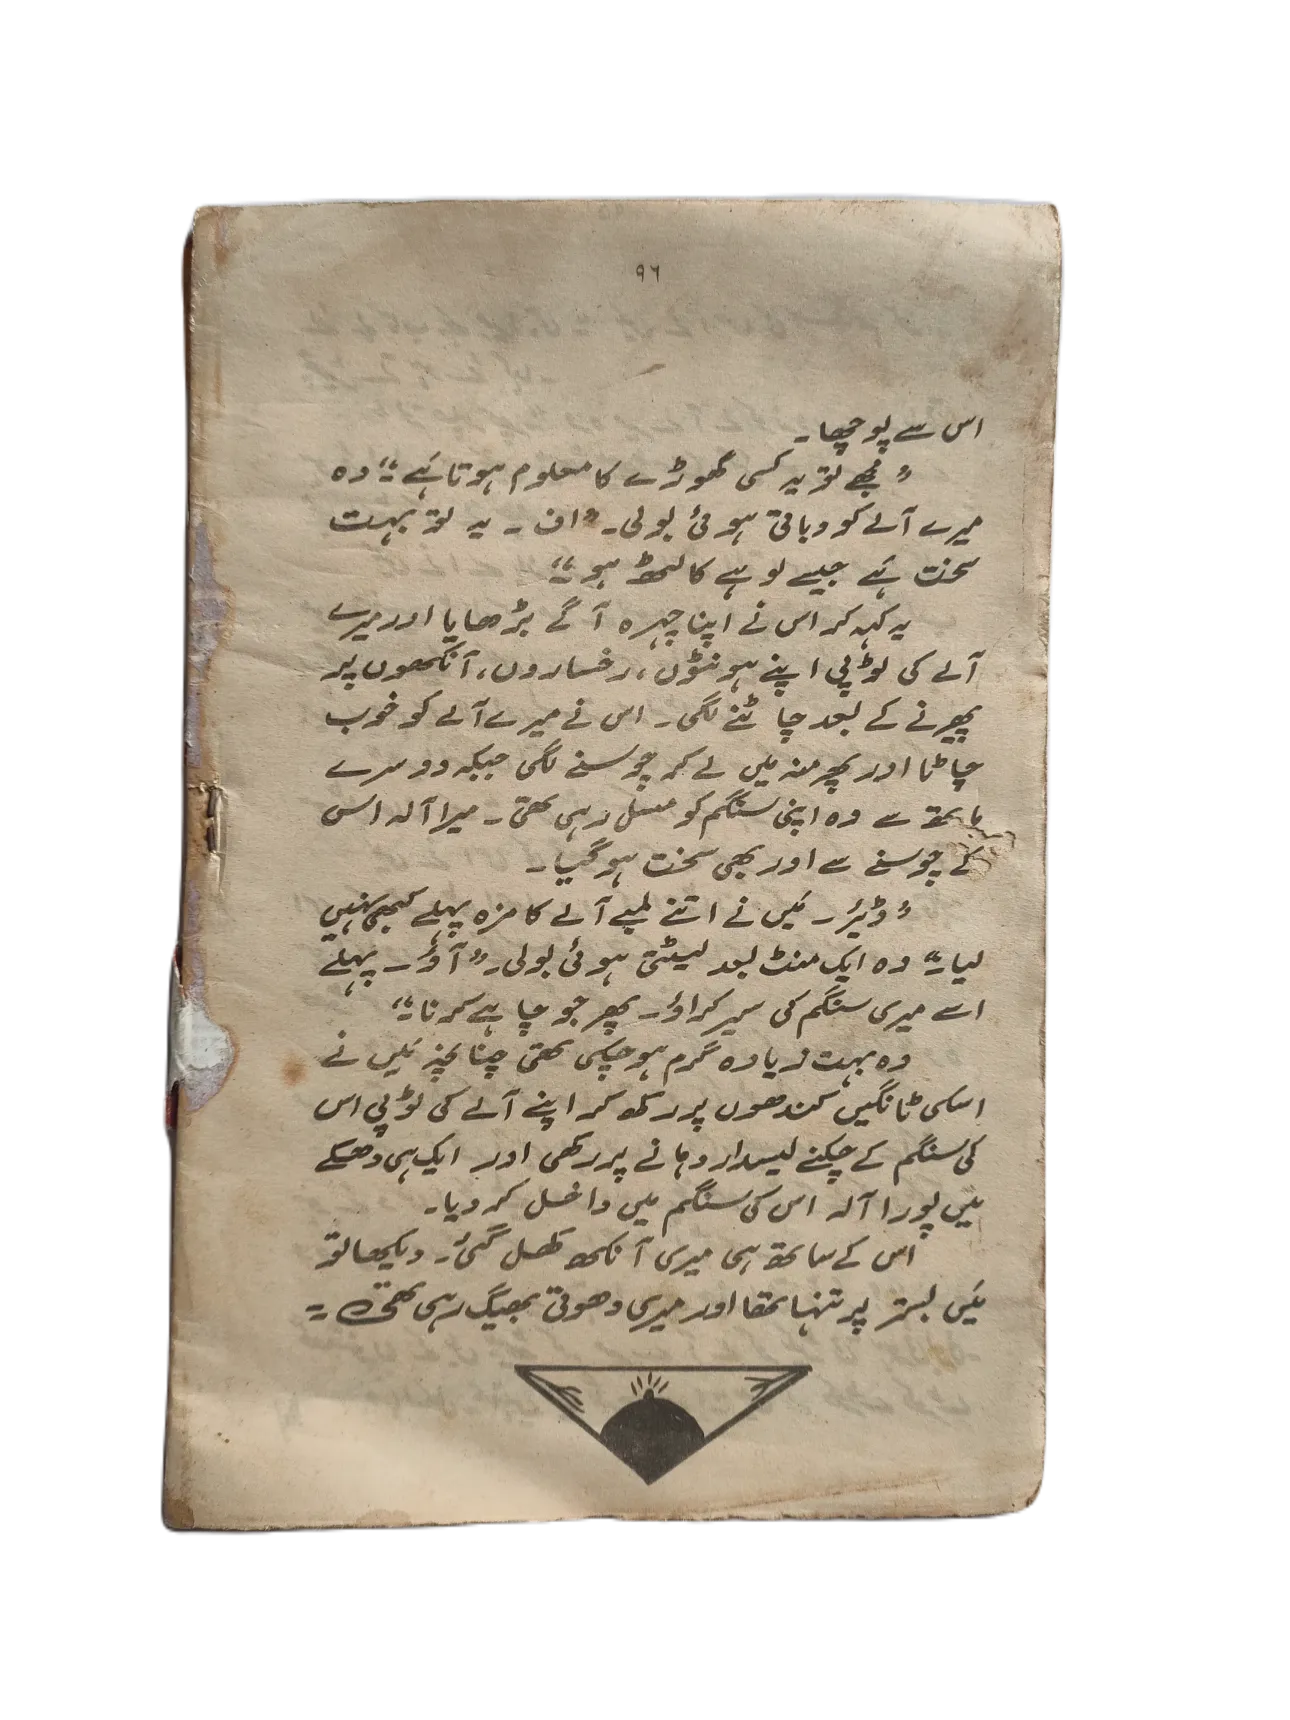 ۹۶
اس سے پوچھا۔
”مجھے تو یہ کسی گھوڑے کا معلوم ہوتا ہَے۔“ وہ
میرے آلے کو دباتی ہوئی بولی۔ ”اف ۔ یہ تو بہت
سخت ہَے جیسے لوہے کا لٹھ ہو۔“
یہ کہہ کر اس نے اپنا چہرہ آگے بڑھایا اور میرے
آلے کی ٹوپی اپنے ہونٹوں، رخساروں، آنکھوں پر
پھیرنے کے بعد چاٹنے لگی۔ اس نے میرے آلے کو خوب
چاٹا اور پھر منہ میں لے کر چوسنے لگی جبکہ دوسرے
ہاتھ سے وہ اپنی سنگم کو مسل رہی تھی۔ میرا آلہ اس
کے چوسنے سے اور بھی سخت ہو گیا۔
”ڈیئر۔ مَیں نے اتنے لمبے آلے کا مزہ پہلے کبھی نہیں
لیا۔“ وہ ایک منٹ بعد لیٹتی ہوئی بولی۔ ”آؤ۔ پہلے
اسے میری سنگم کی سیر کراؤ۔ پھر جو چاہے کرنا۔“
وہ بہت زیادہ گرم ہو چکی تھی چنانچہ مَیں نے
اسکی ٹانگیں کندھوں پر رکھ کر اپنے آلے کی ٹوپی اس
کی سنگم کے چکنے لیسدار دہانے پر رکھی اور ایک ہی دھکے
میں پورا آلہ اس کی سنگم میں داخل کر دیا۔
اس کے ساتھ ہی میری آنکھ کھل گئی۔ دیکھا تو
مَیں بستر پر تنہا تھا اور میری دھوتی بھیگ رہی تھی ۔